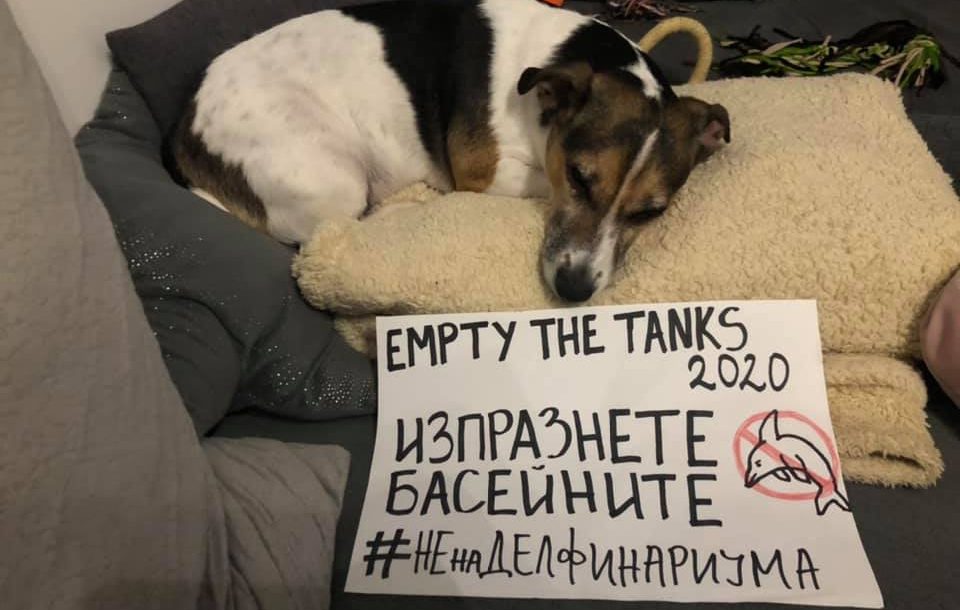 EMPTY THE TANKS
2020
ИЗПРАЗНЕТЕ
БАСЕЙНИТЕ
#НЕнаДЕЛфИНАРИУМА